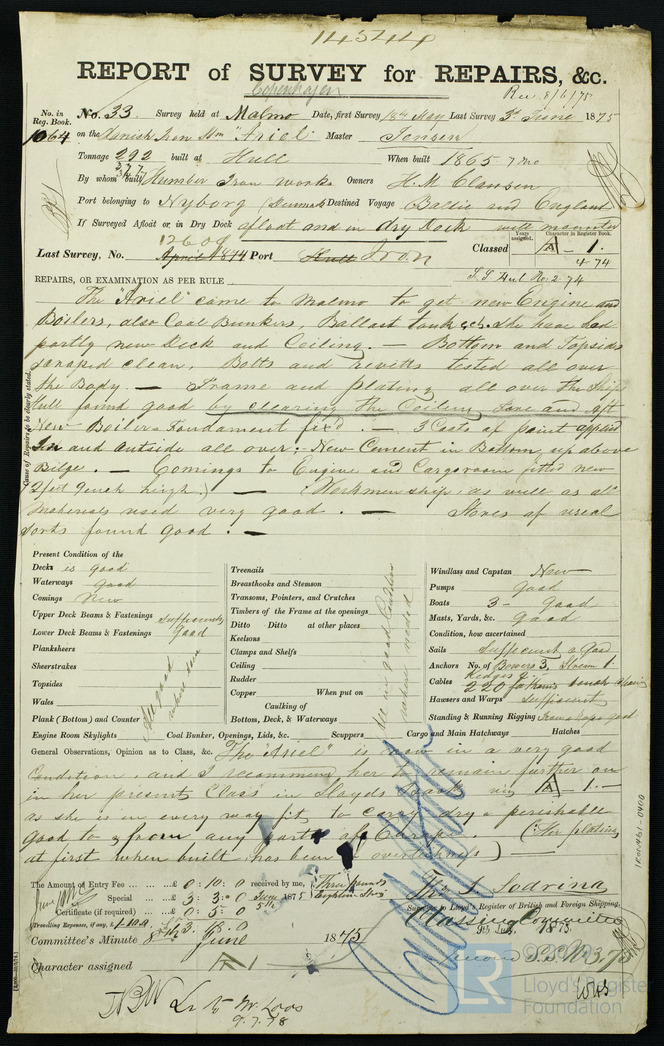 14544
REPORT of SURVEY for REPAIRS, &c.
Copenhagen
Rec 8/6/75
No. in Reg. Book. No. 33 Survey held at Malmo Date, first Survey 18th May Last Survey 3d June 1875
1064 on the Danish Iron "Ariel" Master Jensen
Tonnage 292 built at Hull When built 1865 7 Mo
By whom built Humber Iron works Owners H. M. Clausen
Port belonging to Nyborg Denmark Destined Voyage Baltic and England
If Surveyed Afloat or in Dry Dock afloat and in dry Dock
Years assigned. Character in Register Book.
12609
Last Survey, No. April 1874 Port Hull Iron Classed A - 1.
4 74
REPAIRS, OR EXAMINATION AS PER RULE
S.S. Hul No. 2 74
The "Ariel" came to Malmo to get new Engine and
Boilers, also Coal Bunkers, Ballast tank &ch. She hear had
partly new Deck and Ceiling. — Bottom and Topsids
scraped clean, Bolts and revitts tested all over
the Body. — Frame and plating all over the Ships
Hull found good by clearing the Ceiling Fore and Aft
New Boilers Fundament fixd. — 3 Coats of paint applied
In and Outside all over. New Cement in Bottom, up above
Bilge. — Comings to Engine and Cargoroom fitted new
(2 feet 9 inch high.) — (Workmenship, as well as all
Materials used very good. — Stores of usual
sorts found good. —
Cause of Repairs to be clearly stated.
Present Condition of the
Decks is good
Waterways good
Comings New
Upper Deck Beams & Fastenings sufficiently
Lower Deck Beams & Fastenings good
Planksheers
Sheerstrakes
Topsides
Wales
Plank (Bottom) and Counter
All good where seen
Treenails
Breasthooks and Stemson
Transoms, Pointers, and Crutches
Timbers of the Frame at the openings
Ditto Ditto at other places
Keelsons
Clamps and Shelfs
Ceiling
Rudder
Copper When put on
Caulking of
Bottom, Deck, & Waterways
All in good Condition where needed
Windlass and Capstan New
Pumps Good
Boats 3 - Good
Masts, Yards, &c. good
Condition, how ascertained
Sails Sufficient & Good
Anchors No. of Bowers 3, Stream 1.
Kedges 2.
Cables 220 fathoms
Hawsers and Warps sufficient
Standing & Running Rigging good
Engine Room Skylights Coal Bunker, Openings, Lids, &c. Scuppers Cargo and Main Hatchways Hatches
General Observations, Opinion as to Class, &c. The "Ariel" is now in a very good
Condition, and I recommend her to remain further on
in her present Class in Lloyds Book viz A - 1. —
as she is in every way fit to carry dry & perishable
Good to & from any parts of Europe. (The plating
at first when built, has been
The Amount of Entry Fee ... £ 0 : 10 : 0 received by me,
Special ... £ 3 : 3 : 0 June 1875
Certificate (if required) ... £ 0 : 5 : 0
Travelling Expenses, if any, £
£ 3 : 18 : 0
Three pounds Eighteen
Surveyor to Lloyd's Register of British and Foreign Shipping.
Classing Committee
9th July 1875
Committee's Minute 8 June 1875
Character assigned A 1
Lr to Mr Loos
9.7.78
WHS
IRON461-0400
© 2020
LR
Lloyd's Register
Foundation